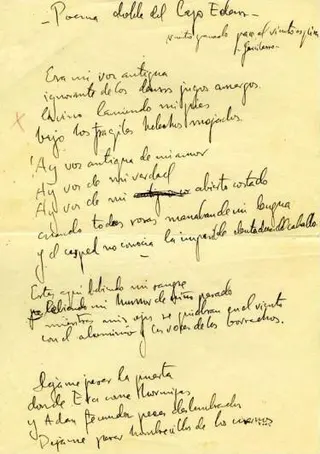 - Poema doble del Lago Edem -
nuestro ganado pace el viento espira
Garcilaso
Era mi voz antigua
ignorante de los densos jugos amargos
lamiendo mis pies
bajo los fragiles helechos mojados
¡Ay voz antigua de mi amor
Ay voz de mi verdad
Ay voz de mi abierto costado
cuando todas rosas manaban de mi lengua
y el cesped no conocia la impasible dentadura del caballo
Estas aqui bebiendo mi sangre
bebiendo mi humor de niño pasado
mientras mis ojos se quiebran en el viento
con el aluminio y las voces de los borrachos.
Dejame pasar la puerta
donde Eva come hormigas
y Adan fecunda peces deslumbrados
Dejame pasar hombrecillo de los cuernos